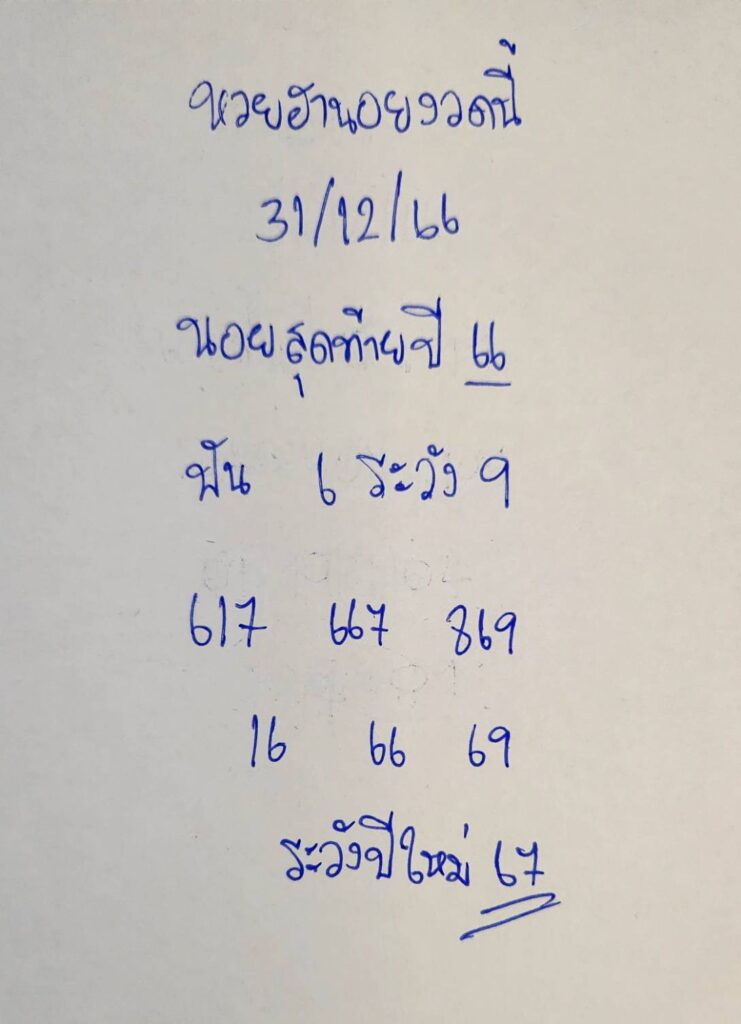 หวยฮานอยงวดนี้
31/12/66
นอยสุดท้ายปี 66
ฟัน 6 ระวัง 9
617 667 869
16 66 69
ระวังปีใหม่ 67